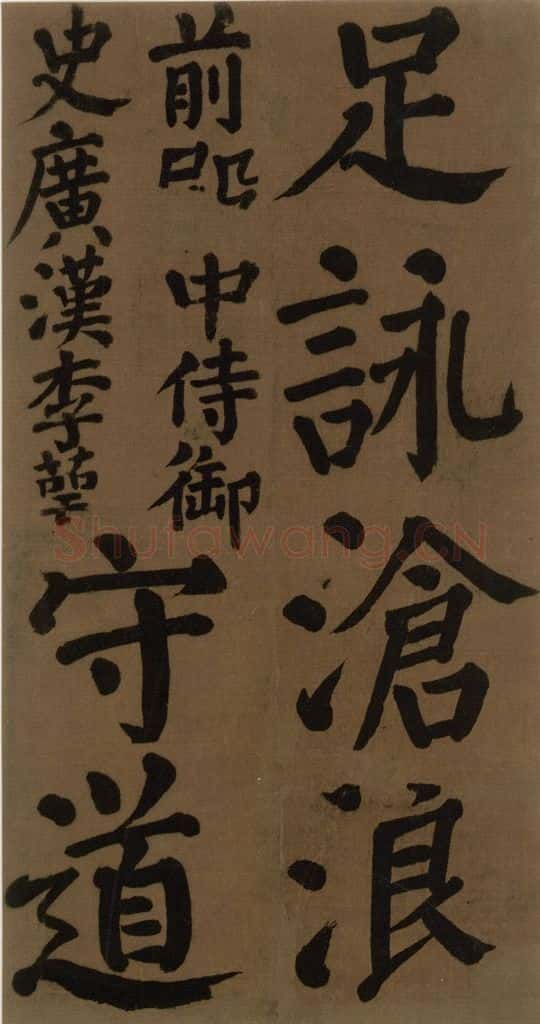 足詠滄浪
前中侍御
史廣漢李萼
守道
Shufawang.CN